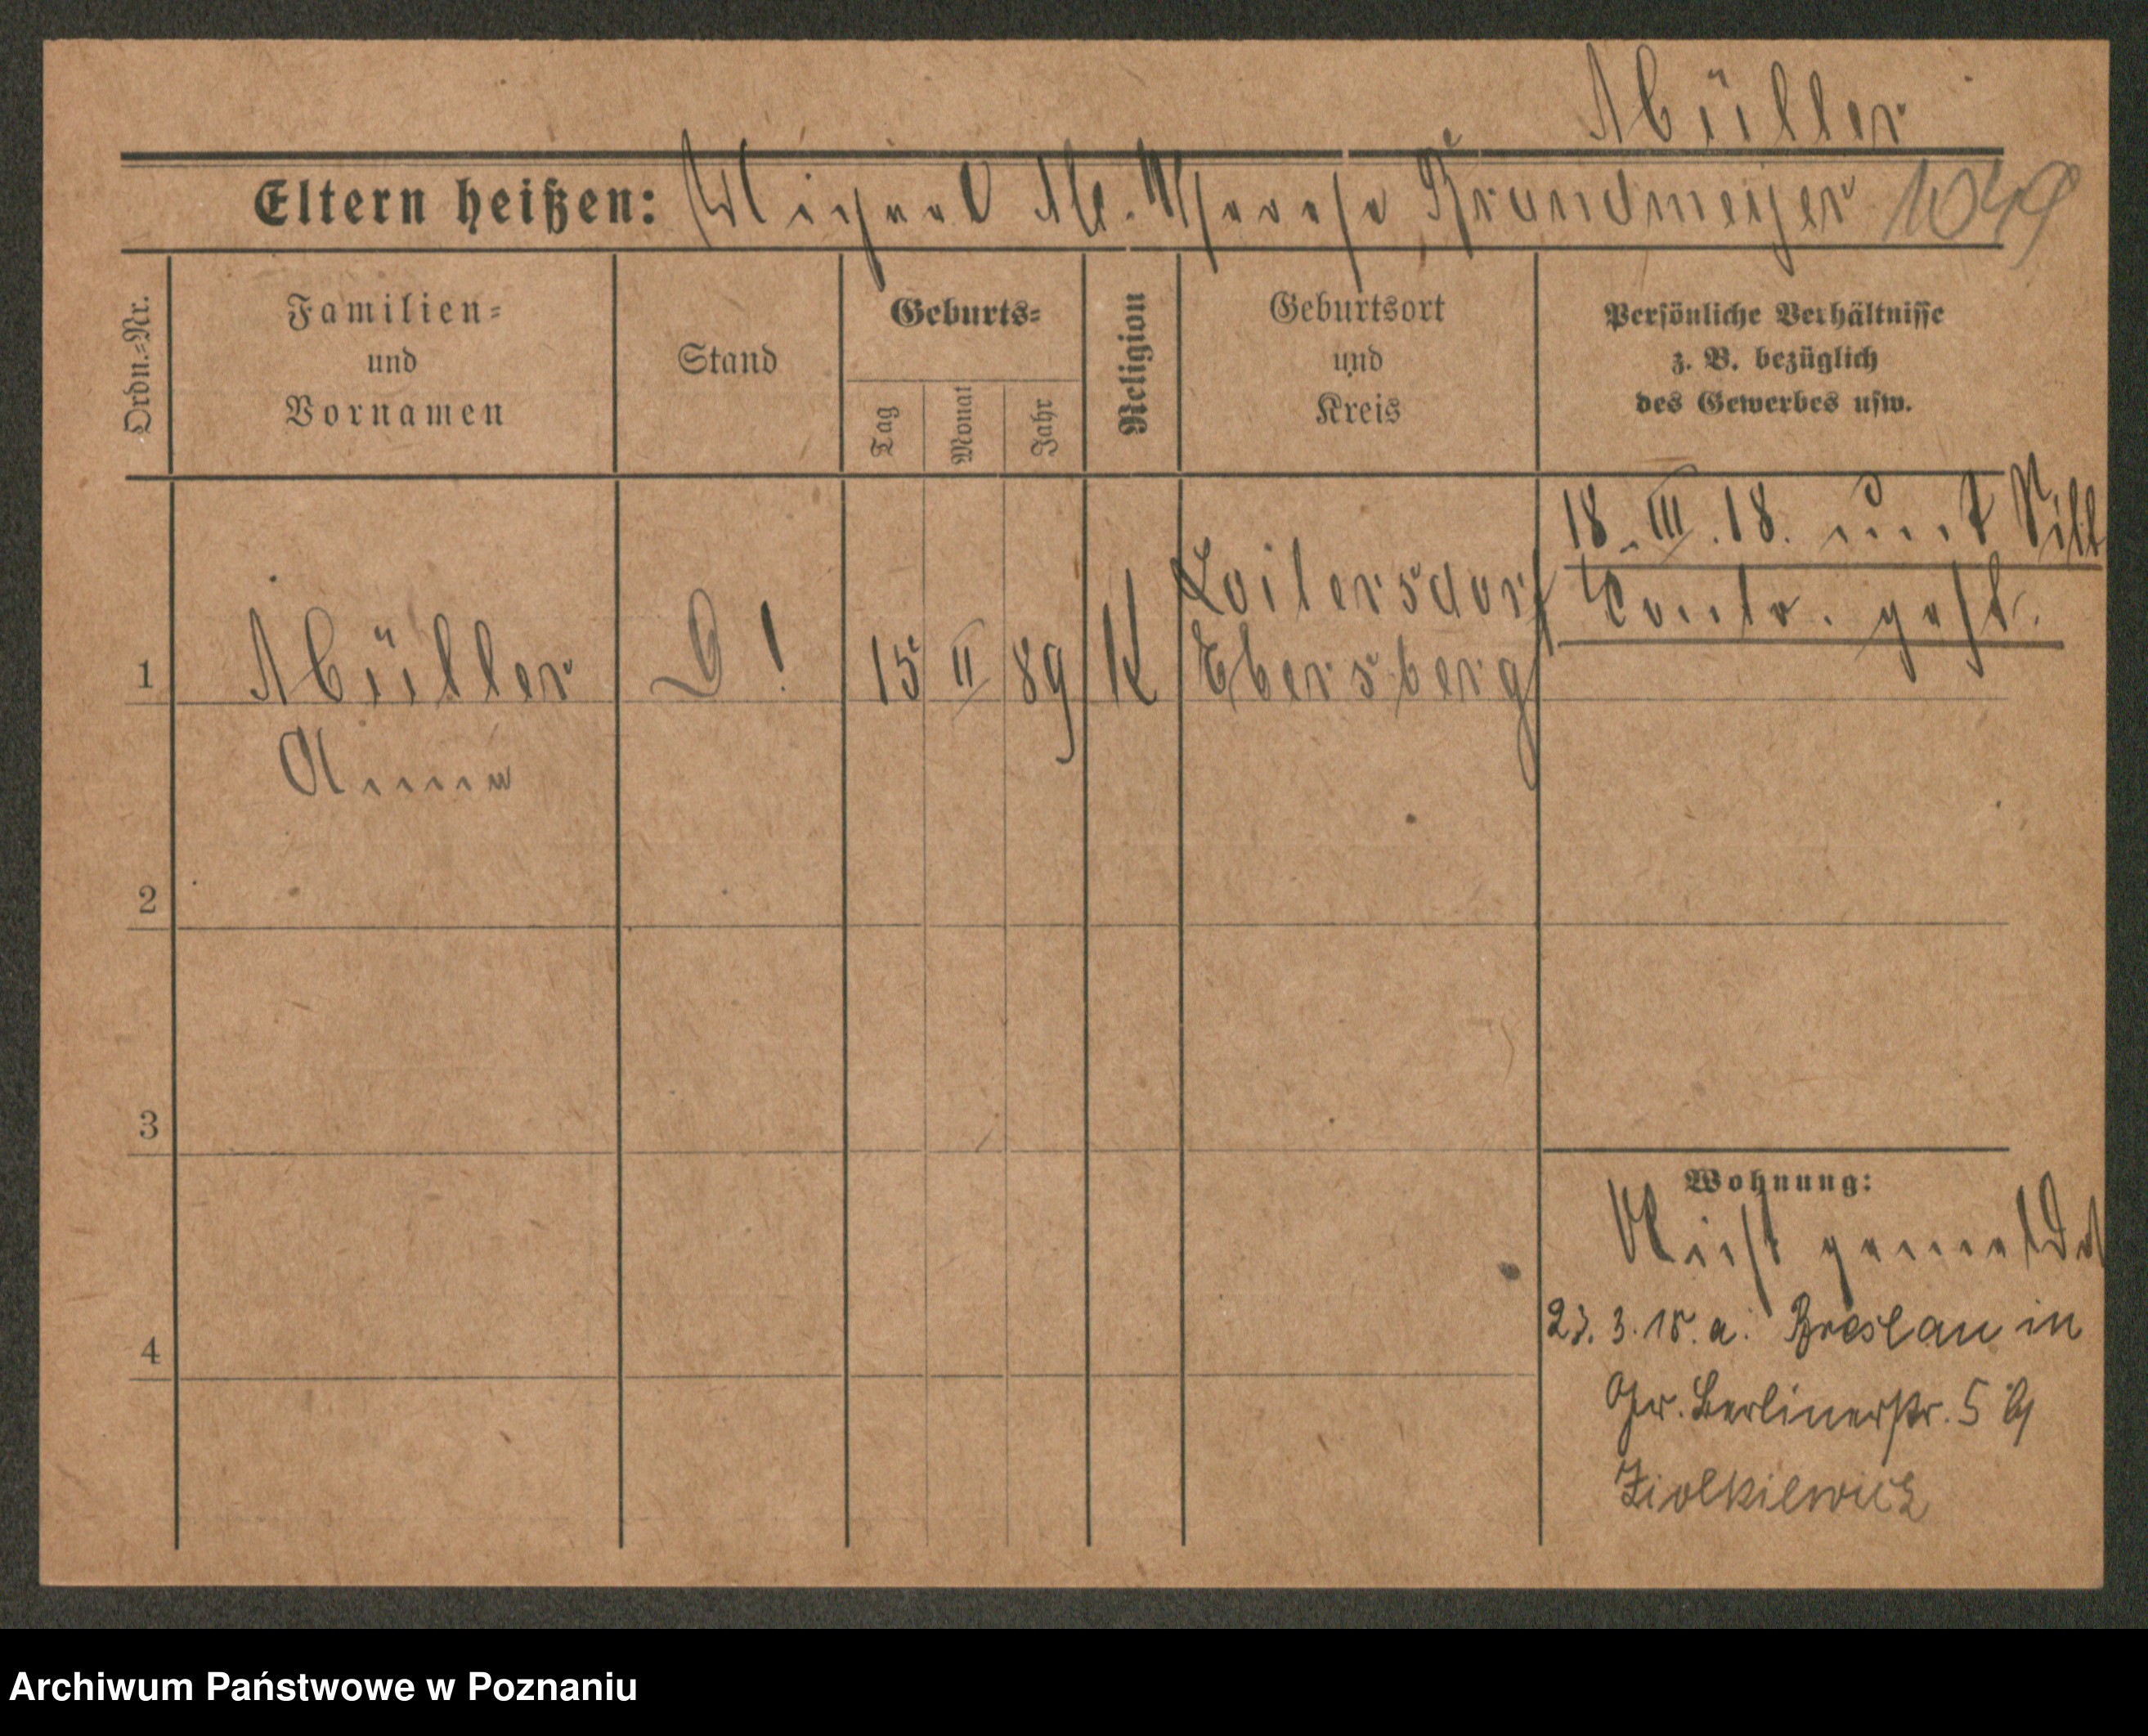 Müller
Eltern heißen: Michael M. Therese Brandmeyer 1049
Ordn.=Nr.
Familien=
und
Vornamen
Stand
Geburts=
Tag
Monat
Jahr
Religion
Geburtsort
und
Kreis
Persönliche Verhältnisse
z. B. bezüglich
des Gewerbes usw.
18. III. 18.
Contr. gest.
1 Müller D! 15 II 89 K Loitersdorf
Ebersberg
Anna
2
3
4
Wohnung:
Nicht gemeldet
23. 3. 18. a. Breslau in
Gr. Berlinerstr. 5 by
Ziolkiewicz
Archiwum Państwowe w Poznaniu